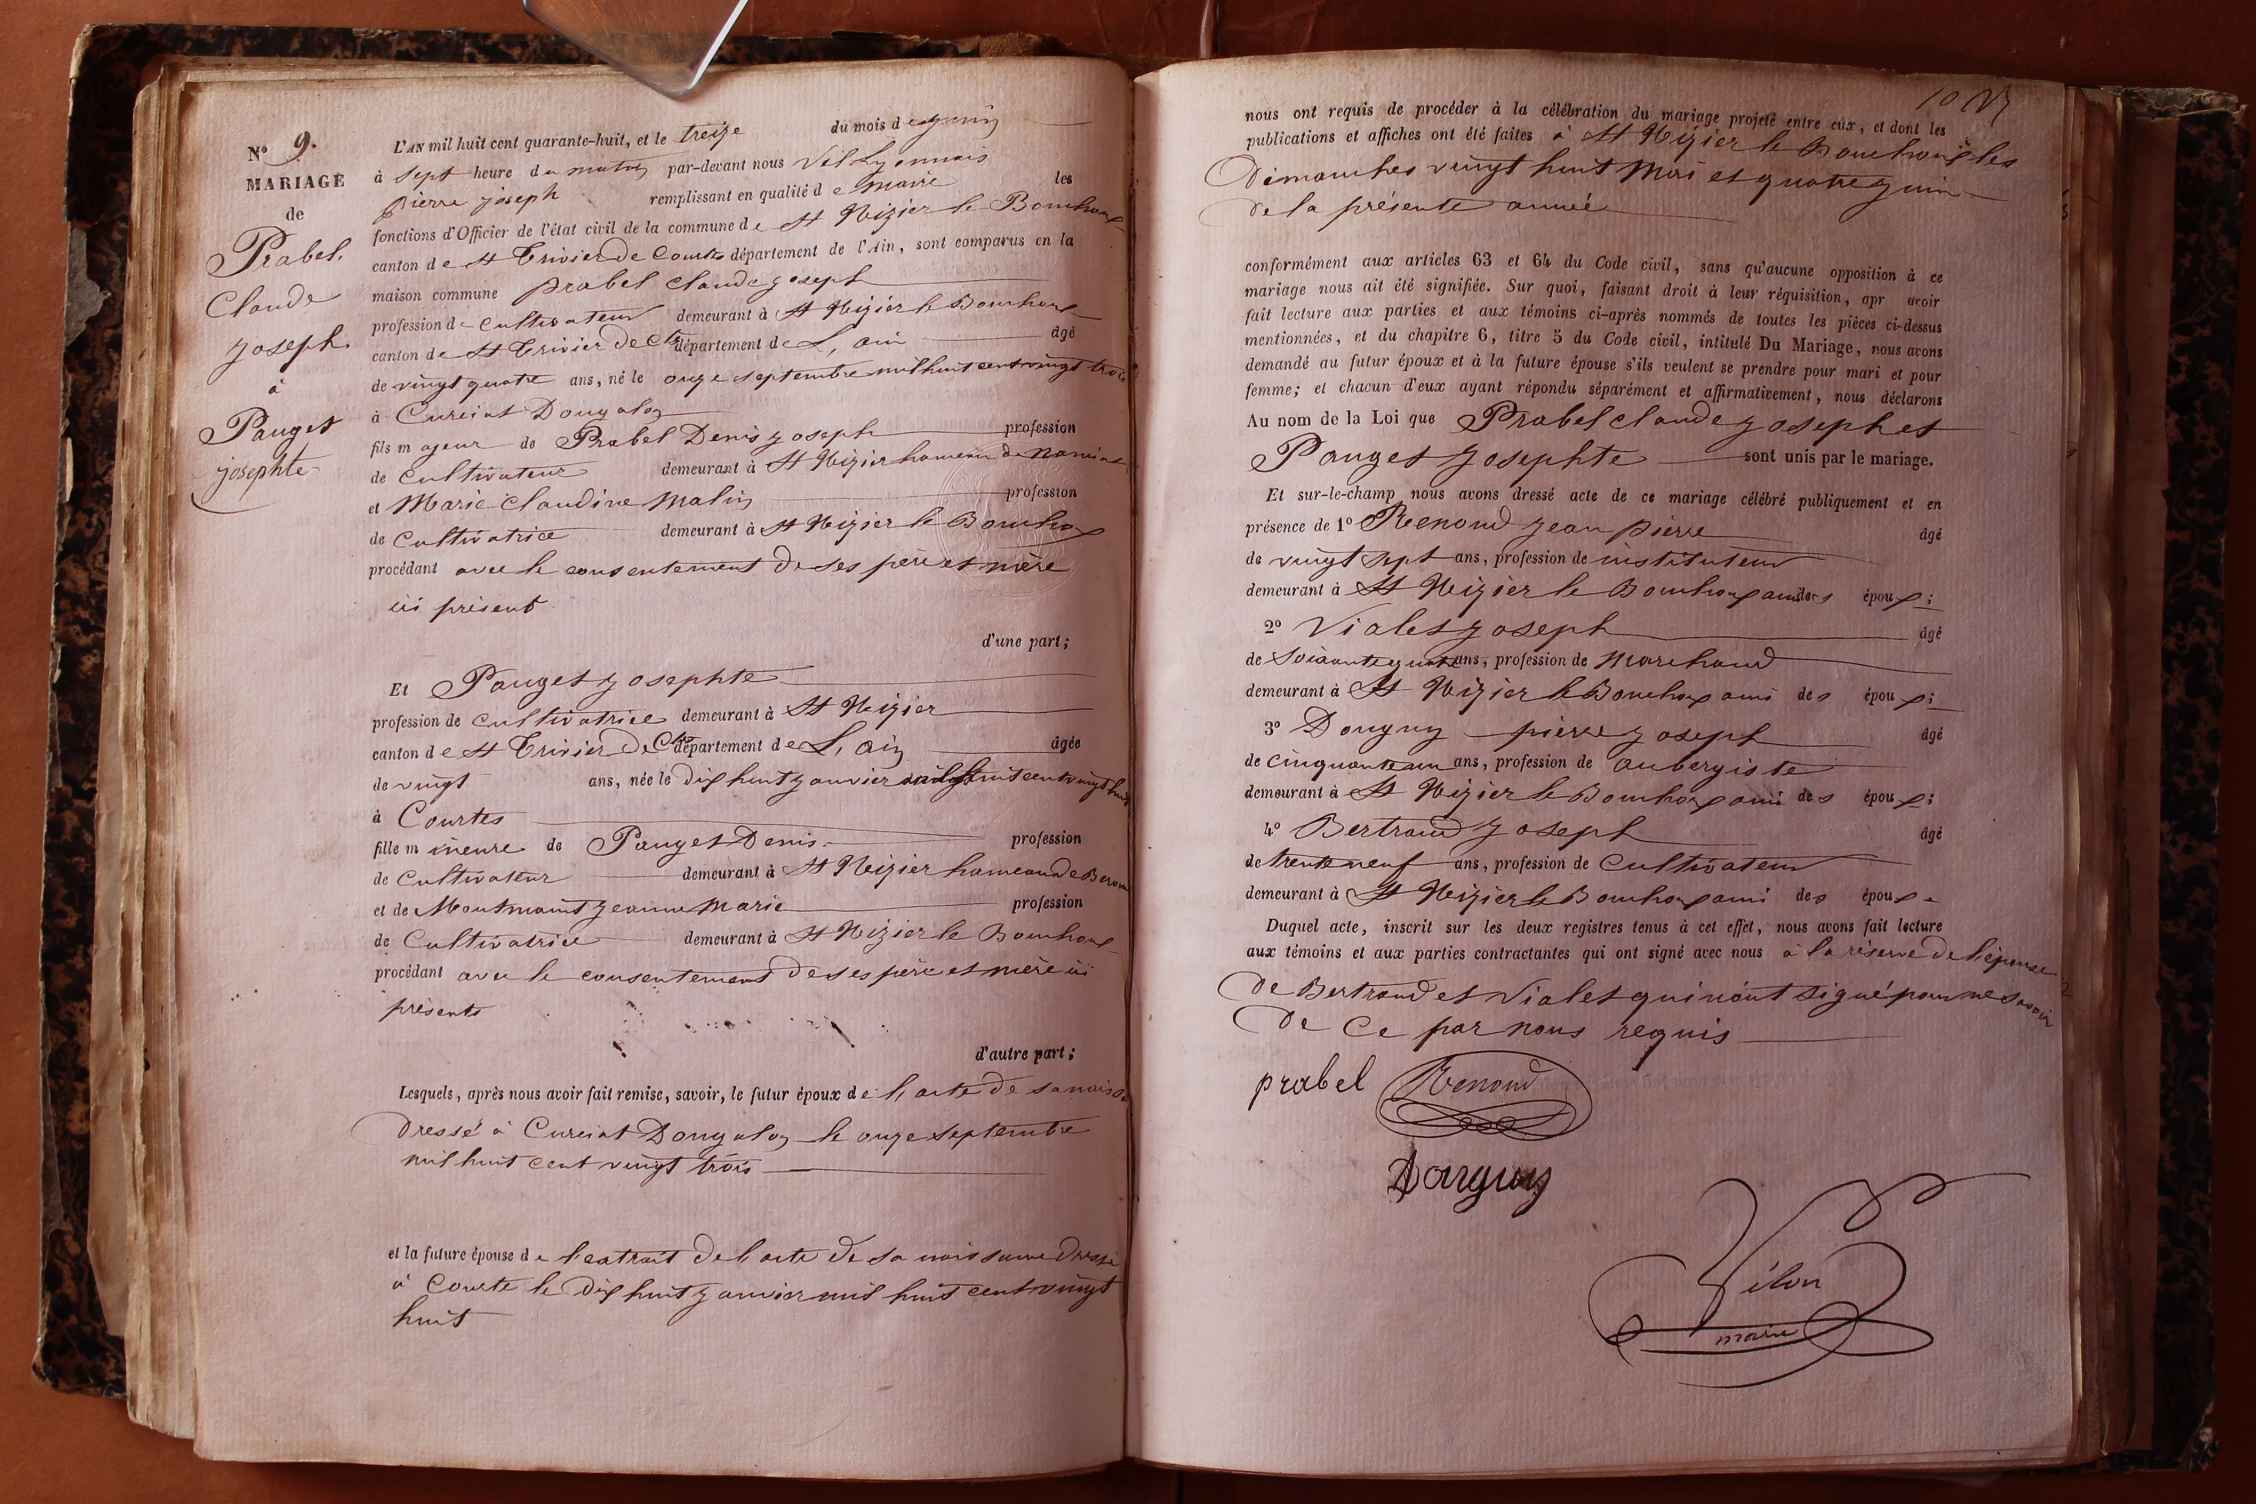 N° 9.
MARIAGE
de
Prabel.
Claude
joseph.
à
Pauget
josephte
L'AN mil huit cent quarante-huit, et le treize du mois de juin
à sept heure du matin par-devant nous
pierre joseph remplissant en qualité de Maire les
fonctions d'Officier de l'état civil de la commune de St Nizier le Bouchoux
canton de St Trivier de Courtes département de l'Ain, sont comparus en la
maison commune prabel claude joseph
profession de cultivateur demeurant à St Nizier le Bouchoux
canton de St Trivier de Ctes département de L'ain âgé
de vingt quatre ans, né le onze septembre mil huit cent vingt trois
à Curciat Dongalon
fils majeur de Prabel Denis joseph profession
de cultivateur demeurant à St Nizier hameau de
et Marie Claudine Matin profession
de cultivatrice demeurant à St Nizier le Bouchoux
procédant avec le consentement de ses père et mère
ici présent
d'une part;
Et Pauget josephte
profession de cultivatrice demeurant à St Nizier
canton de St Trivier de Cts département de L'ain âgée
de vingt ans, née le dix huit janvier mil huit cent vingt huit
à Courtes
fille mineure de Pauget Denis profession
de cultivateur demeurant à St Nizier hameau de
et de Montmaint jeanne Marie profession
de Cultivatrice demeurant à St Nizier le Bouchoux
procédant avec le consentement de ses père et mère ici
présents
d'autre part;
Lesquels, après nous avoir fait remise, savoir, le futur époux de l'acte de sa naiss
Dressé à Curciat Dongalon le onze septembre
mil huit cent vingt trois
et la future épouse de l'extrait de l'acte de sa naissance dressé
à Courte le dix huit janvier mil huit cent vingt
huit
10
nous ont requis de procéder à la célébration du mariage projeté entre eux, et dont les
publications et affiches ont été faites à St Nizier le Bouchoux les
Dimanches vingt huit Mai et quatre juin
de la présente année
conformément aux articles 63 et 64 du Code civil, sans qu'aucune opposition à ce
mariage nous ait été signifiée. Sur quoi, faisant droit à leur réquisition, apr avoir
fait lecture aux parties et aux témoins ci-après nommés de toutes les pièces ci-dessus
mentionnées, et du chapitre 6, titre 5 du Code civil, intitulé Du Mariage, nous avons
demandé au futur époux et à la future épouse s'ils veulent se prendre pour mari et pour
femme; et chacun d'eux ayant répondu séparément et affirmativement, nous déclarons
Au nom de la Loi que Prabel claude joseph et
Pauget josephte sont unis par le mariage.
Et sur-le-champ nous avons dressé acte de ce mariage célébré publiquement et en
présence de 1° Renoud jean pierre âgé
de vingt sept ans, profession de instituteur
demeurant à St Nizier le Bouchoux ami des époux;
2° Vialet joseph âgé
de soixante quatre ans, profession de Marchand
demeurant à St Nizier le Bouchoux ami des époux;
3° Donguy pierre joseph âgé
de cinquante un ans, profession de aubergiste
demeurant à St Nizier le Bouchoux ami des époux;
4° Bertrand joseph âgé
de trente neuf ans, profession de cultivateur
demeurant à St Nizier le Bouchoux ami des époux
Duquel acte, inscrit sur les deux registres tenus à cet effet, nous avons fait lecture
aux témoins et aux parties contractantes qui ont signé avec nous à la réserve de l'épouse
de Bertrand et Vialet qui n'ont signé pour ne savoir
de ce par nous requis
prabel Renoud
Donguy
Vélon
maire